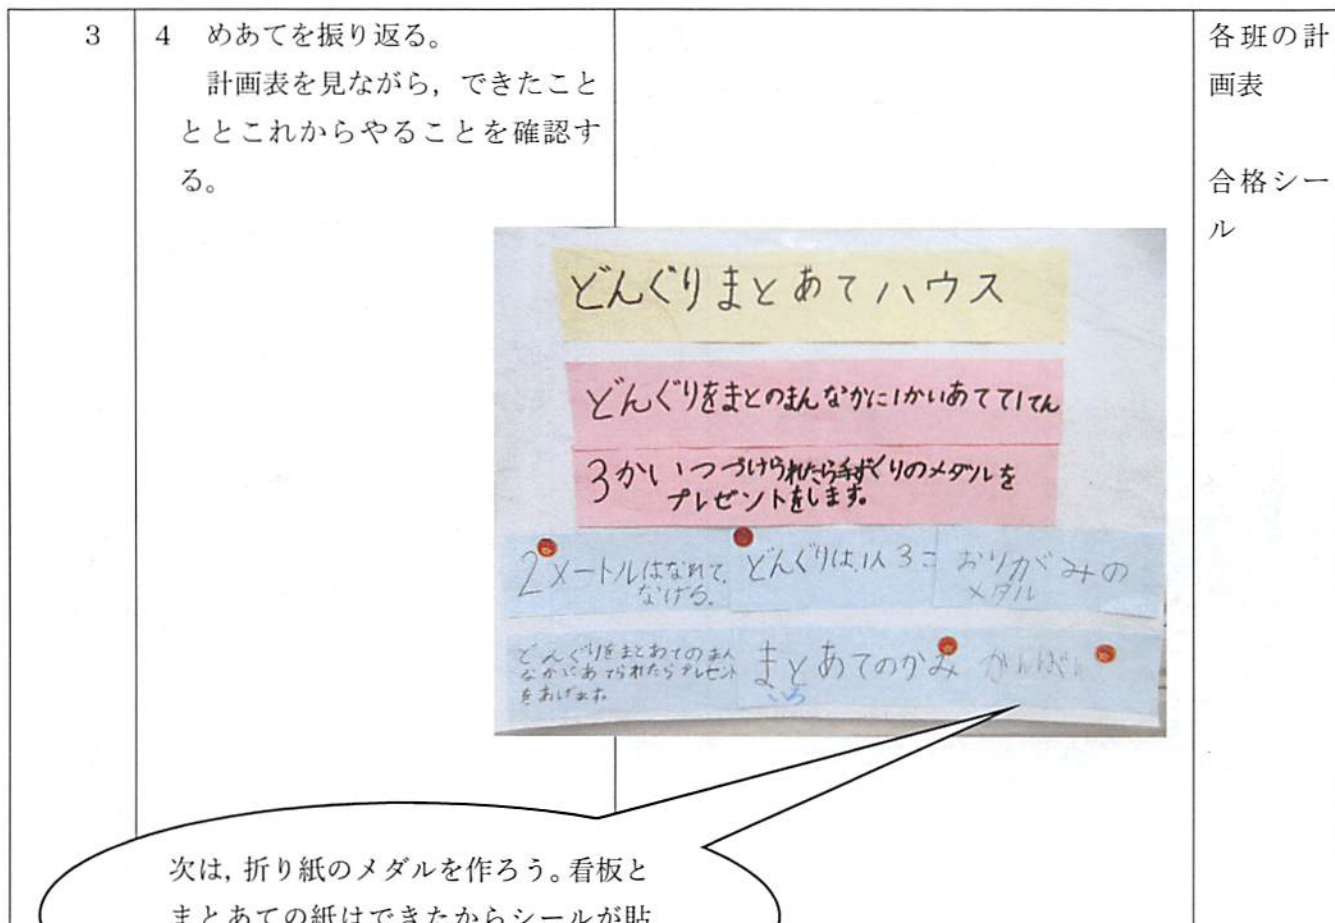 3
4 めあてを振り返る。
計画表を見ながら，できたこと
ととこれからやることを確認す
る。
各班の計
画表
合格シー
ル
どんぐりまとあてハウス
どんぐりをまとのまんなかに1かいあてて1てん
3かいつづけられたら手ずくりのメダルを
プレゼントをします。
2メートルはなれて、
なげる。
どんぐりは、1人3こ
おりがみの
メダル
どんぐりをまとあてのまん
なかにあてられたらプレゼント
をあげます。
まとあてのかみ
かんばん
次は，折り紙のメダルを作ろう。看板と
まとあての紙はできたからシールが貼